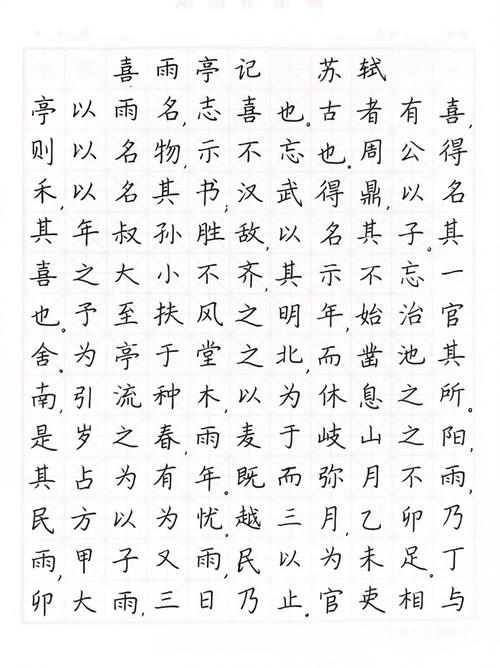 喜雨亭记 苏轼
亭以雨名,志喜也。古者有喜,
则以名物,示不忘也。周公得
禾,以名其书;汉武得鼎,以名
其年叔孙胜敌,以名其子。其
喜之大小不齐,其示不忘一
也。予至扶风之明年,始治官
舍。为亭于堂之北,而凿池其
南,引流种木,以为休息之所。
是岁之春,雨麦于岐山之阳,
其占为有年。既而弥月不雨,
民方以为忧。越三月,乙卯乃
雨,甲子又雨,民以为未足。丁
卯大雨,三日乃止。官吏相与